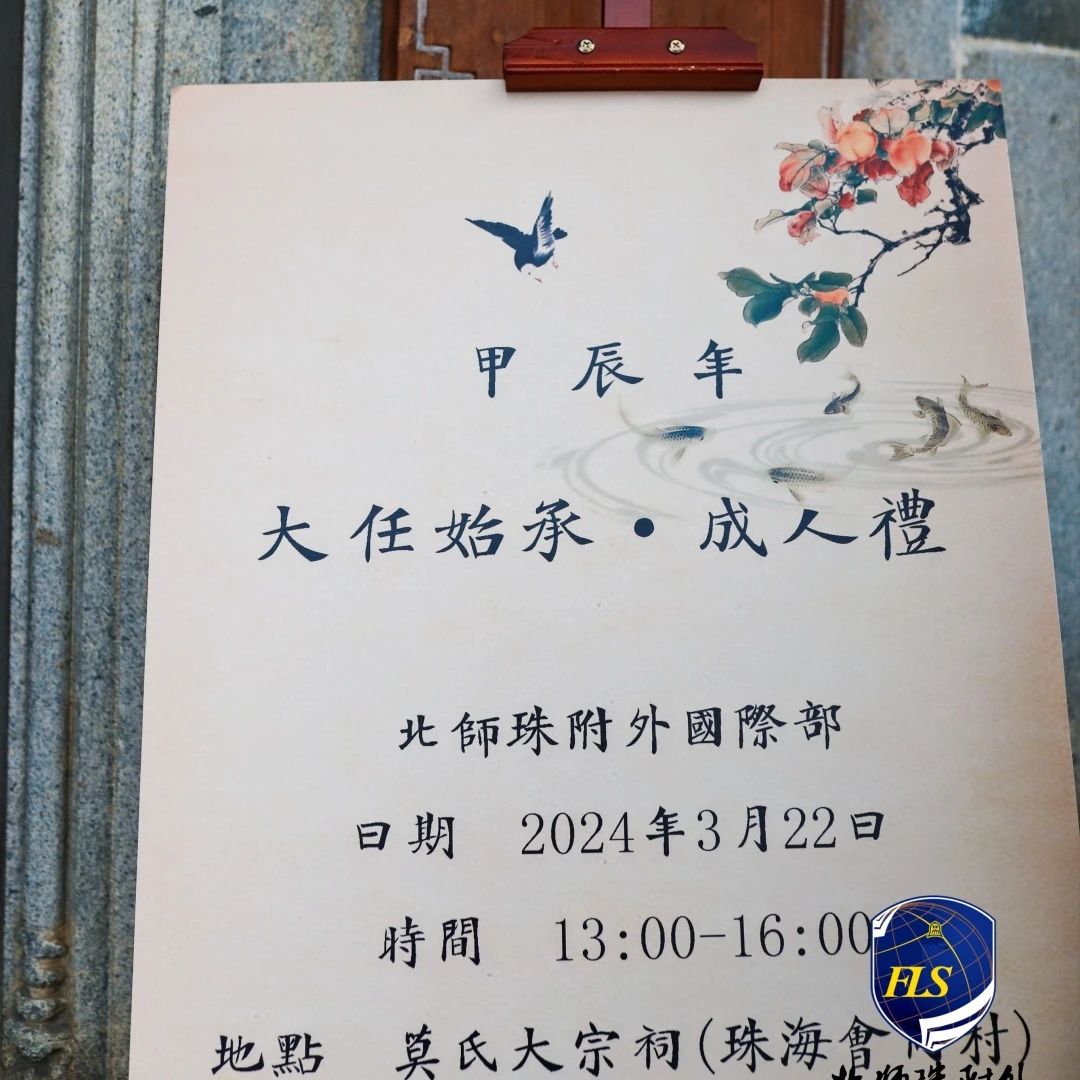 甲辰年
大任始承·成人禮
北師珠附外國際部
日期 2024年3月22日
時間 13:00-16:00
地點 莫氏大宗祠(珠海會 村)
FLS
北師珠附外